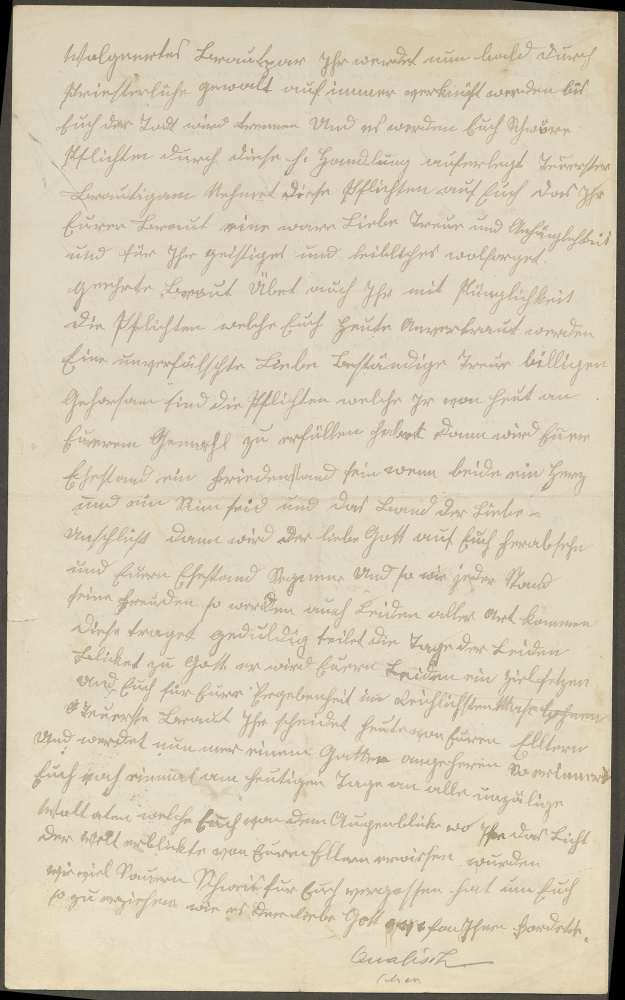 Wolgeertes Brautpar Ihr werdet nun bald durch
priesterliche gewalt auf immer verknüft werden bis
Euch der Todt wird trennen Und es werden Euch Schwere
Pflichten durch diese h. Handlung auferlegt Teuerster
Bräutigam Nehmet diese Pflichten auf Euch das Ihr
Eurer Braut eine ware Liebe Treue und Anhänglichkeit
und für Ihr geistiges und leibliches wol sorget
geehrte Braut Übet auch Ihr mit Pünglichkeit
die Pflichten welche Euch heute Anvertraut werden
Eine unverfälschte Liebe Beständige Treue billigen
Gehorsam sind die Pflichten welche Ir von heut an
Euerem Gemahl zu erfüllen habet dann wird Euere
Ehestand ein friedenstand sein wenn beide ein Herz
und ein Sinn seid und das Band der Liebe
Umschlüst dann wird der liebe Gott auf Euch herabsehn
und Euern Ehestand Segnen Und so wie jeder Stand
seine Freuden so werden auch Leiden aller Art kommen
Diese traget geduldig teilet die Tage der Leiden
Blicket zu Gott er wird Euern Leiden ein Ziel setzen
und Euch für Eure Ergebenheit im Reichlichsten Mase lohnen
O Teuerste Braut Ihr scheidet heute von Euren Elltern
Und werdet nun mer einem Gatten angehören So erinnert
Euch noch einmal am heutigen Tage an alle unzälige
Woltaten welche Euch von dem Augenblicke wo Ihr das Licht
der Welt erblickte von Euren Elltern erwisen wurden
wie viel Sauern Schweis für Euch vergossen hat um Euch
so zu erziehen wie es der liebe Gott von Ihnen fordete.